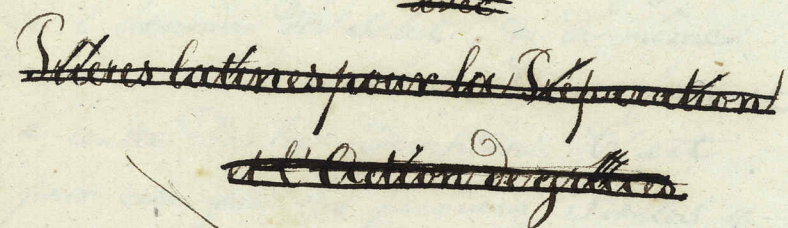 avec
Prières latines pour la Préparation
et l'Action de grâces